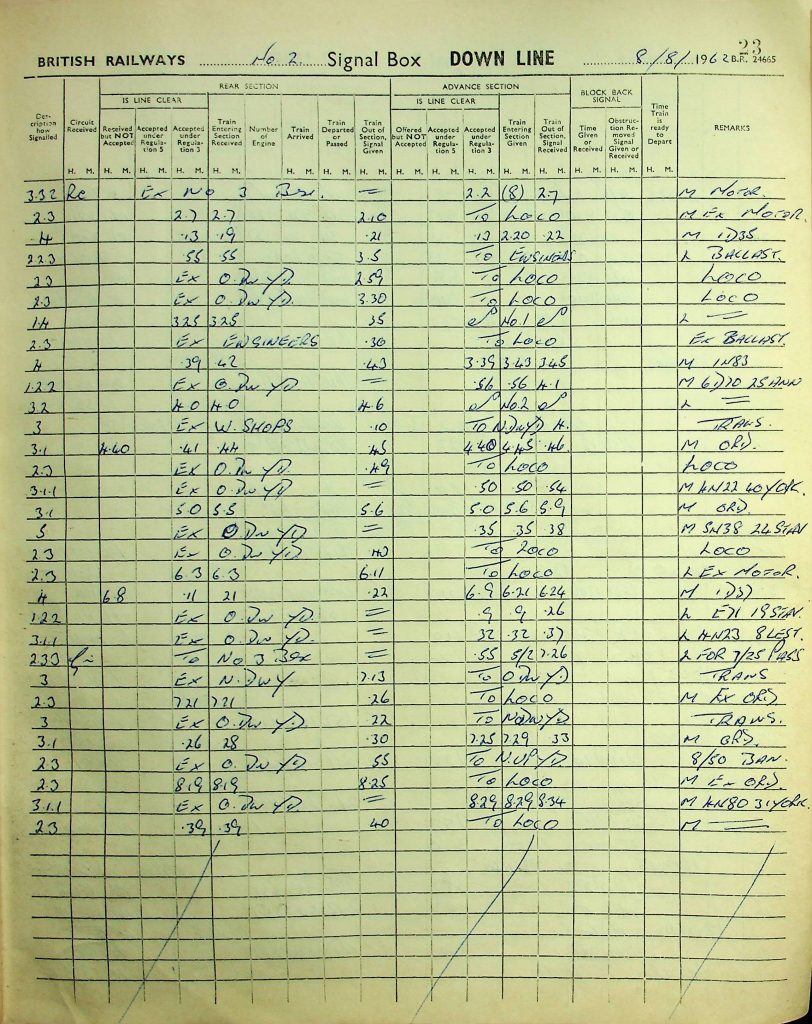 23
BRITISH RAILWAYS No 2. Signal Box DOWN LINE 8/8/1962 B.R. 24665
REAR SECTION ADVANCE SECTION BLOCK BACK SIGNAL
IS LINE CLEAR IS LINE CLEAR
Description how Signalled Circuit Received Received but NOT Accepted Accepted under Regulation 5 Accepted under Regulation 3 Train Entering Section Received Number of Engine Train Arrived Train Departed or Passed Train Out of Section Given Offered but NOT Accepted Accepted under Regulation 5 Accepted under Regulation 3 Train Entering Section Given Train Out of Section Received Time Given or Received Obstruction Removed Signal Given or Received Time Train is ready to Depart REMARKS
H. M. H. M. H. M. H. M. H. M. H. M. H. M. H. M. H. M. H. M. H. M. H. M. H. M. H. M. H. M. H. M.
3.3.2 Rc Ex No 3 Box = 2.2 (8) 2.7 M MOTOR.
2.3 2.7 2.7 2.10 To LOCO M Ex MOTOR.
4 .13 .19 .21 .13 2.20 .22 M 1D35
2.2.3 .55 .55 3.5 To ENGINEERS L BALLAST.
2.3 Ex O.Dw YD. 2.59 To LOCO LOCO
2.3 Ex O.Dw YD. 3.30 To LOCO LOCO
1.4 3.25 3.25 35 No.1 L =
2.3 Ex ENGINEERS .30 To LOCO Ex BALLAST.
4 .39 .42 .43 3.39 3.43 3.45 M 1N83
1.2.2 Ex O.Dw YD = .56 .56 4.1 M 25 ANN
3.2 4.0 4.0 4.6 No.2 L =
3 Ex W.SHOPS .10 To N.DwYD TRANS.
3.1 4.40 .41 .44 .45 4.40 4.45 .46. M ORD.
2.3 Ex O.Dw YD. .49 To LOCO LOCO
3.1.1 Ex O.Dw YD = .50 .50 .54 M HN22 40 YORK.
3.1 5.0 5.5 5.6 5.0 5.6 5.9 M ORD.
5 Ex O.Dw YD = .35 35 38 M 5N38 24 STAN
2.3 Ex O.Dw YD To LOCO LOCO
2.3 6.3 6.3 6.11 To LOCO L Ex MOTOR.
4 6.8 .11 21 .22 6.9 6.21 6.24 M 1D37
1.2.2 Ex O.Dw YD. = .9 .9 .26 L E71 19 STAN.
3.1.1 Ex O.Dw YD. = 32 .32 .37 L HN23 8 LEST.
2.3.3 To No 3 Box = .55 5/2 7.26 L FOR 7/25 PASS
3 Ex N.DWY 7.13 To O.DwYD TRANS
2.3 7.21 7.21 .26 To LOCO M Ex ORD
3 Ex O.Dw YD .22 To NoDwYD TRANS.
3.1 .26 28 .30 7.25 7.29 .33 M ORD.
2.3 Ex O.Dw YD 55 To N.UP YD. 8/50 BAN.
2.3 8.19 8.19 8.25 To LOCO M Ex ORD.
3.1.1 Ex O.Dw YD = 8.29 8.29 8.34 M HN80 31 YORK.
2.3 .39 .39 40 To LOCO M =